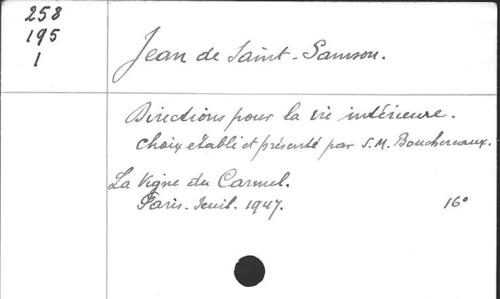 258
195
1
Jean de Saint-Samson.
Directions pour la vie intérieure.
choix établi et présenté par S.M. Bouchereaux.
La Vigne du Carmel.
Paris. Seuil. 1947. 16°